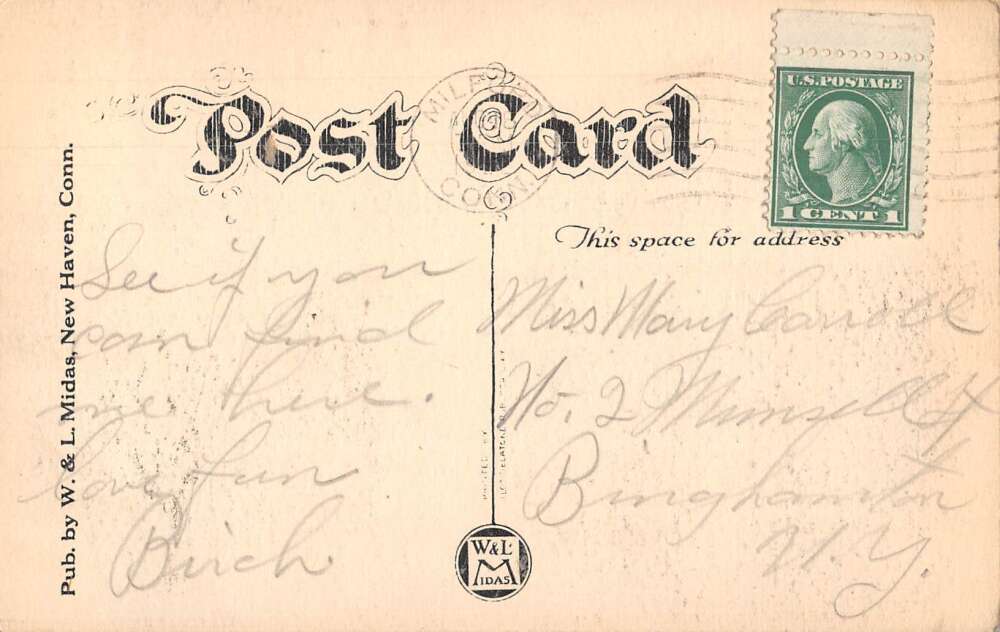 Post Card
MILFORD
CONN.
U.S. POSTAGE
1 CENT 1
Pub. by W. & L. Midas, New Haven, Conn.
This space for address
See if you
can find
me here.
love fun
Birch
Miss Mary Carroll
No. 2 Munsell St
Binghamton
N.Y.
W&L
MIDAS